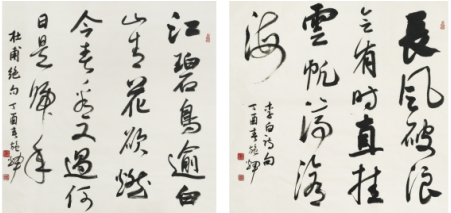 江碧鳥逾白
山青花欲燃
今春看又過何
日是歸年
杜甫絕句丁酉春
長風破浪
會有時直挂
雲帆濟滄
海
李白詩句
丁酉春